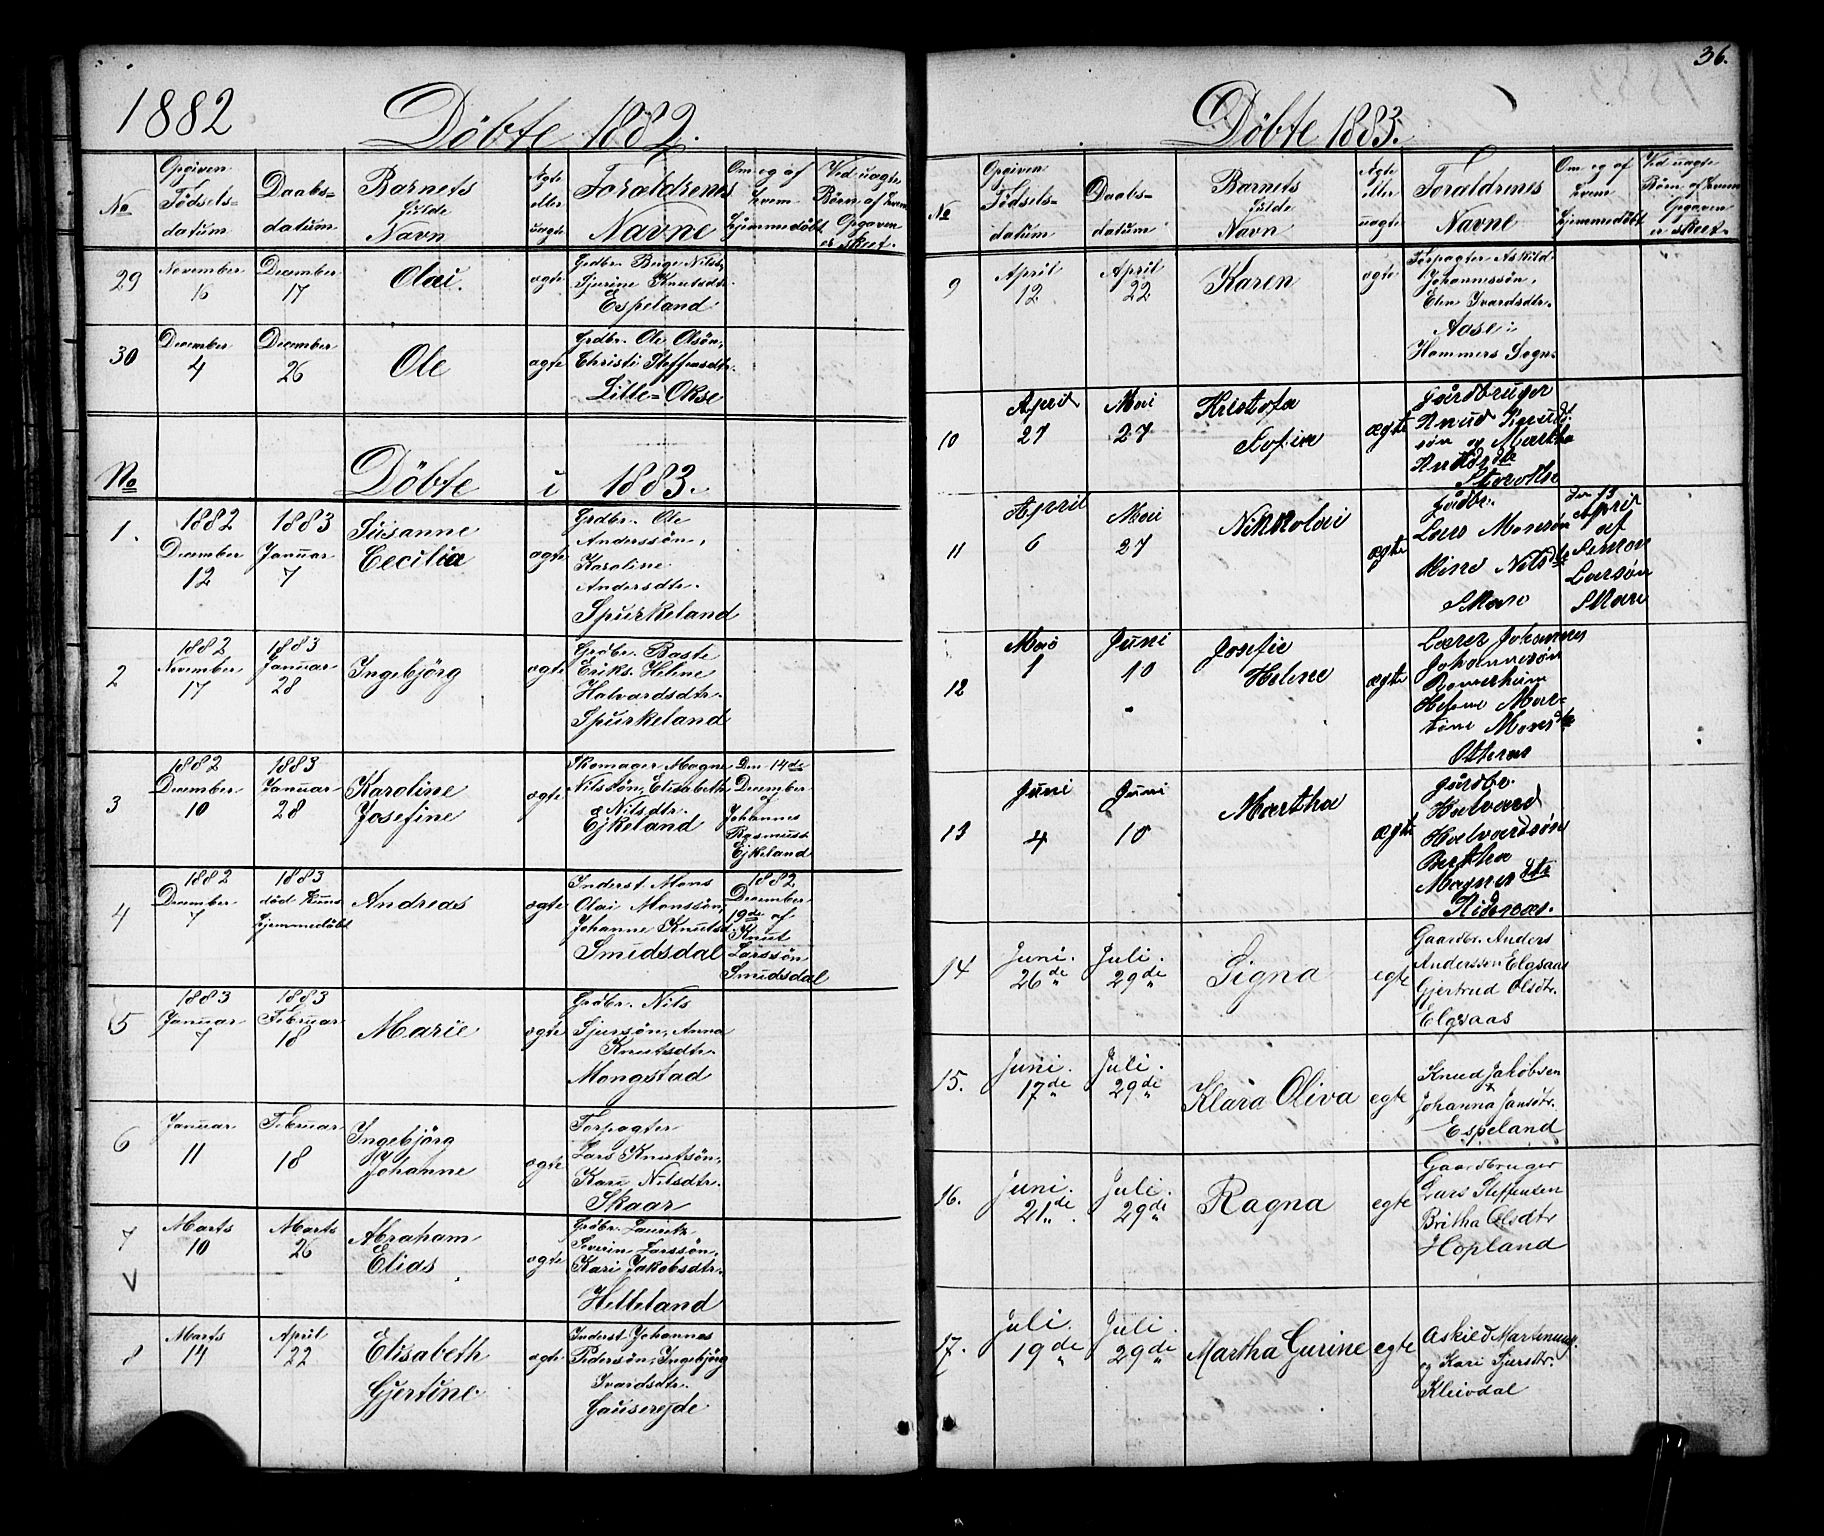 1882
Döbte 1882.
No
Opgiven Födsels-datum
Daabs-datum
Barnets fulde Navn
Ægte eller uægte
Foraldrenes Navne
Om og af hvem hjemmedöbt
Ved uægte Börn af hvem Opgaven er skeet.
29
November 16
December 17
Olai.
ægte
Grdbr. Berge Nils,
Sjurine Knutsdtr.
Espeland
30
December 4
December 26
Ole
ægte
Grdbr. Ole Olsön,
Christi Steffensdtr.
Lille-Okse
No
Döbte i 1883.
1.
1882 December 12
1883 Januar 7
Susanne
Cecilia
ægte
Grdbr. Ole
Anderssön,
Karoline
Andersdtr.
Spurkeland
2
1882 November 17
1883 Januar 28
Ingebjörg
ægte
Grdbr. Baste
Eriks. Helene
Halvardsdtr.
Spurkeland
3
1882 December 10
1883 Januar 28
Karoline
Josefine
ægte
Skomager Magne
Nilssön, Elisabeth
Nilsdtr.
Ejkeland
Den 14de
December
af
Johannes
Rasmuss.
Ejkeland
4
1882 December 7
1883
död kuns
hjemmedöbt
Andreas
ægte
Inderst. Mons
Olai Monssön,
Johanne Knutsd.
Smidsdal
1882
December
19de af
Knut
Larssön
Smidsdal
5
1883 Januar 7
1883 Februar 18
Marie
ægte
Grdbr. Nils
Sjursön, Anna
Knutsdtr.
Mongstad
6
Januar 11
Februar 18
Ingebjörg
Johanne
ægte
Forpagter
Lars Knutsön,
Kari Nilsdtr.
Skaar
7
V
Marts 10
Marts 26
Abraham
Elias
ægte
Grdbr. Lauritz
Severin Larssön,
Kari Jakobsdtr.
Helleland
8
Marts 14
April 22
Elisabeth
Gjertine.
ægte
Inderst Johannes
Pedersön, Ingebjörg
Ivarsdtr.
36.
Döbte 1883.
No
Opgiven Födsels-datum
Daabs-datum
Barnets fulde Navn
Ægte eller uægte
Foraldrenes Navne
Om og af hvem hjemmedöbt
Ved uægte Börn af hvem Opgaven er skeet.
9
April 12
April 22
Karen
ægte
Forpagter Askild
Johannesön,
Elen Ivarsdtr.
Aase i
Hammers Sogn
10
April 27
Mai 27
Kristofa
Sofie
ægte
Gårdbruger
Knud Knud-
søn og Martha
11
April 6
Mai 27
Nikkolai
ægte
Gådbr.
Lars Monsøn
Nilsdtr
Skare
den 13
April
af
Simon
Larsøn
Skare
12
Mai 1
Juni 10
Josefie
Helene
ægte
Lærer Johannes
Johannesøn
Helene Mar-
tine Monsdtr
Otteraas
13
Juni 4
Juni 10
Martha
ægte
Gårdbr.
Halvard
Halvardsøn
Bertha
Magnesdtr
Risesnæs.
14
Juni. 26de
Juli. 29de
Signa
egte
Gaardbr. Anders
Anderssen Elgsaas
Gjertrud Olsdtr.
Elgsaas
15.
Juni. 17de
Juli. 29de
Klara Oliva
egte
Knud Jakobsen
x
Johanna Jansdtr.
Espeland
16.
Juni. 21de
Juli. 29de
Ragna
egte
Gaardbruger
Lars Steffensen
Britha Olsdtr
Hopland
17.
Juli. 19de
Juli. 29de
Martha Gurine
egte
Askild Martinus.
og Kari Sjursdtr.
Kleivdal